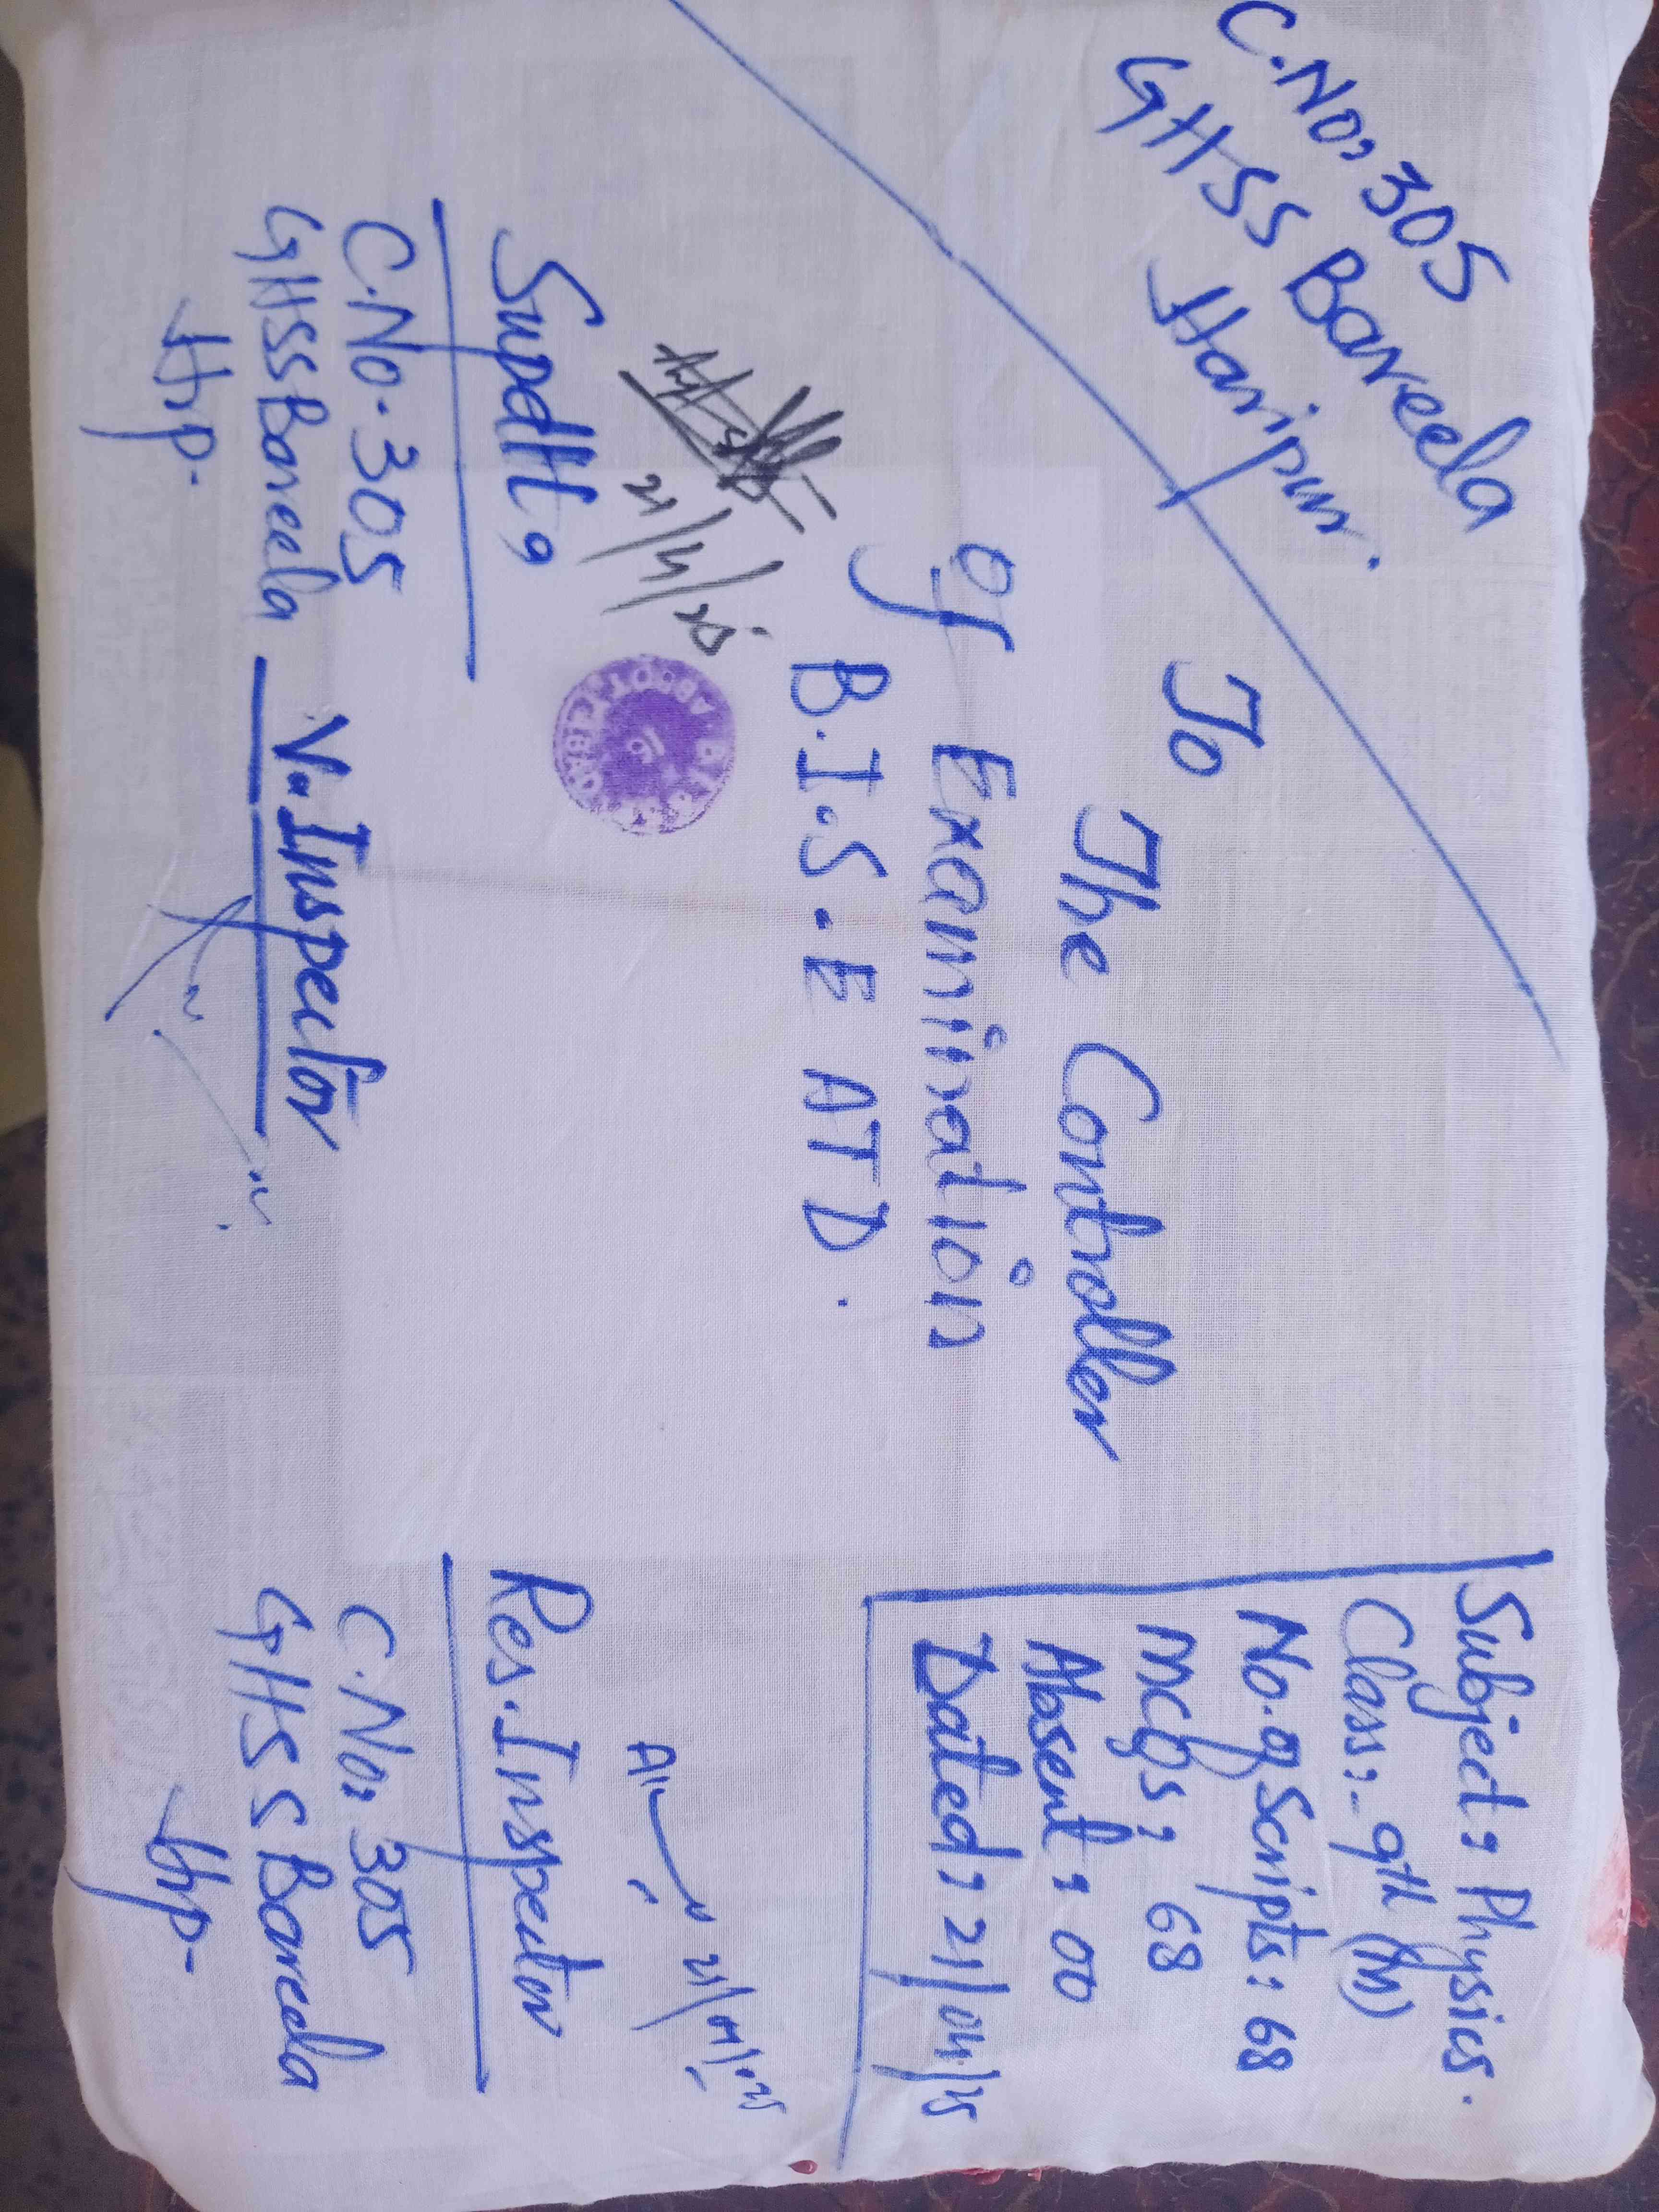 C.No, 305
GHSS Bareela
Haripur.
Subject: Physics.
Class:- 9th (M)
No. of Scripts: 68
MCQs: 68
Absent: 00
Dated: 21/04/25
To
The Controller
Of Examination
B.I.S.E ATD.
21/4/25
Supdtt,
C.No. 305
GHSS Bareela
Hrp.
V. Inspector
21/4/25
Res. Inspector
C.No, 305
GHSS Bareela
Hrp-